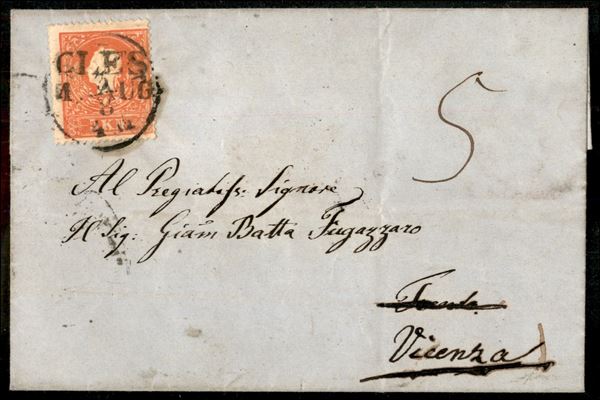 CLES
4. AUG
5
Al Pregiatiss: Signore
Il Sig: Giam Batta Fugazzaro
Trento
Vicenza